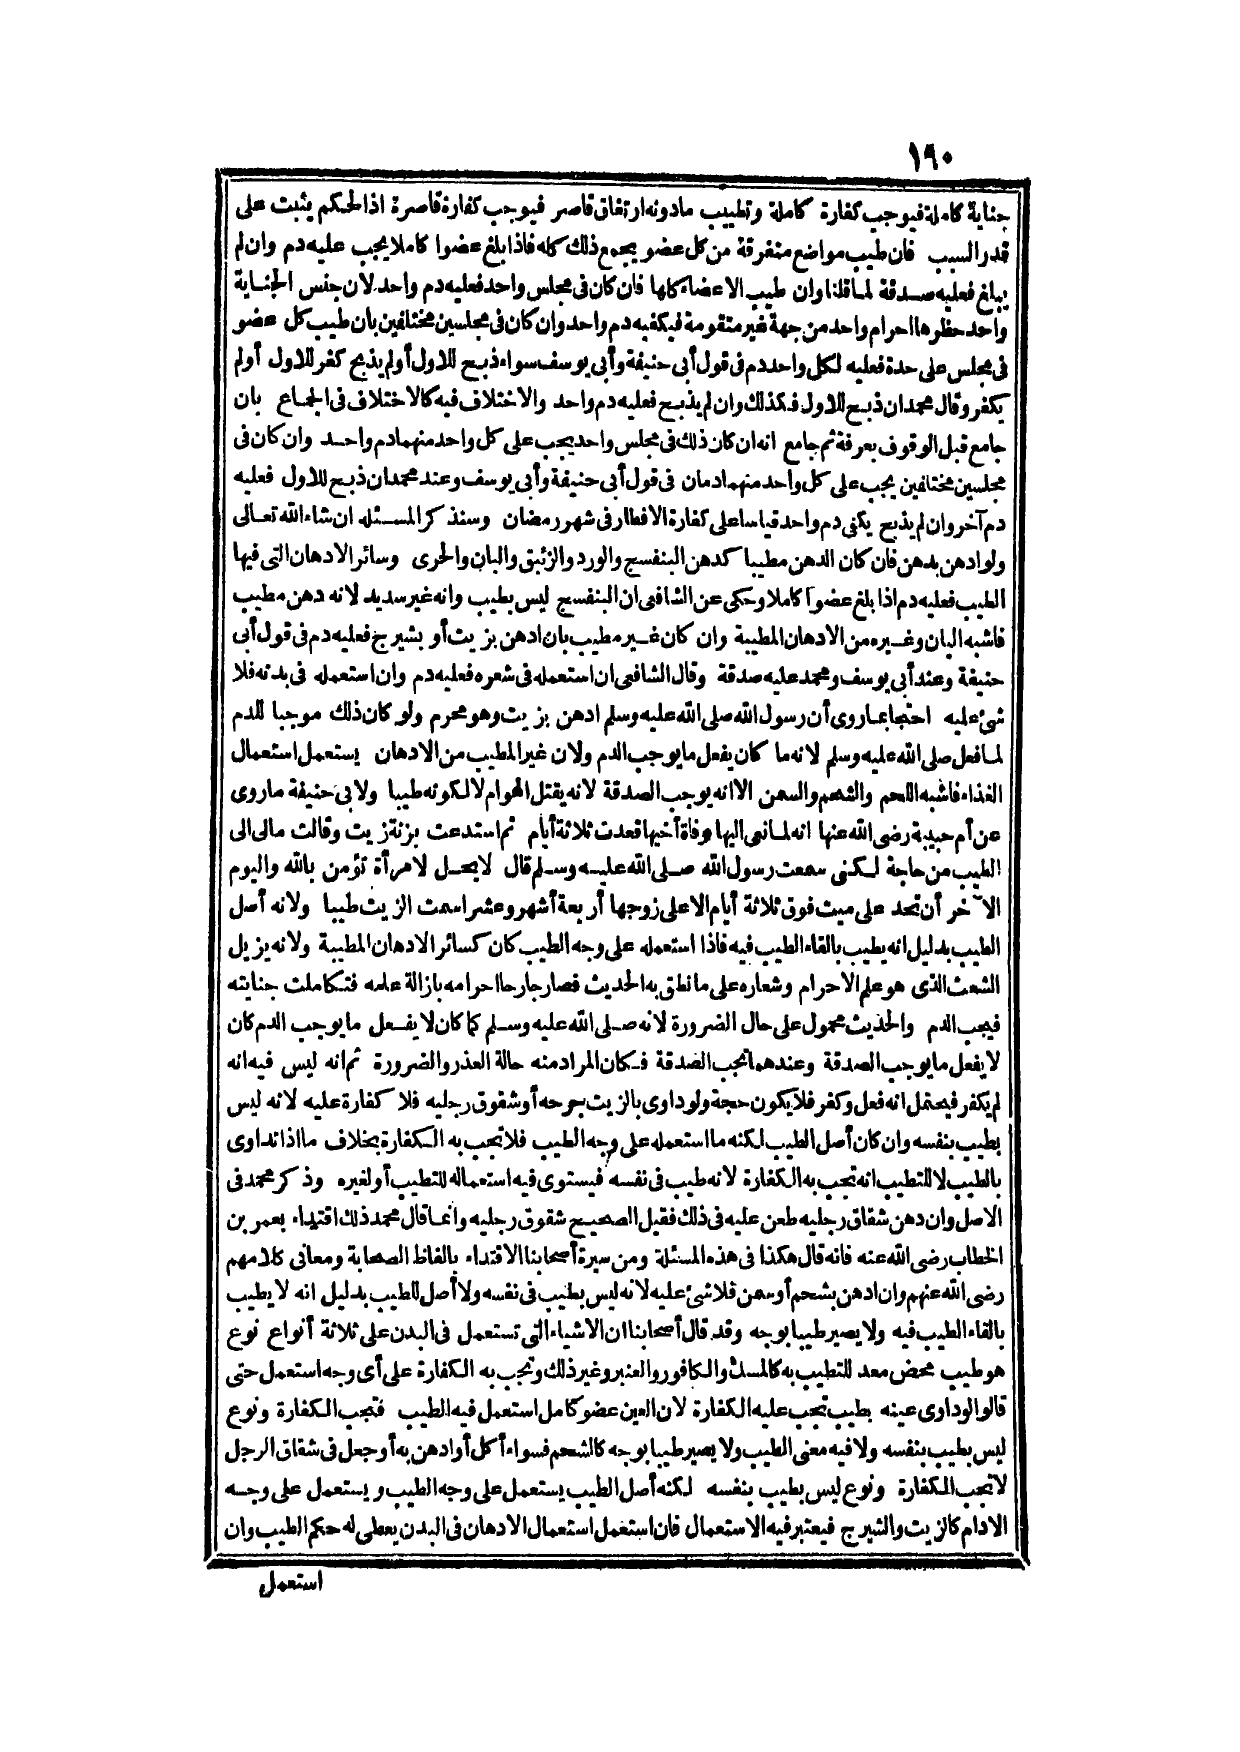 ١٩٠
جناية كاملة فيوجب كفارة كاملة وتطييب مادونه ارتفاق قاصر فيوجب كفارة قاصرة اذ الحكم يثبت على
قدر السبب فان طيب مواضع متفرقة من كل عضو يجمع ذلك كله فاذا بلغ عضوا كاملا يجب عليه دم وان لم
يبلغ فعليه صدقة لما قلنا وان طيب الاعضاء كلها فان كان فى مجلس واحد فعليه دم واحد لان جنس الجناية
واحد حظرها احرام واحد من جهة غير متقومة فيكفيه دم واحد وان كان فى مجلسين مختلفين بان طيب كل عضو
فى مجلس على حدة فعليه لكل واحد دم فى قول أبى حنيفة وأبى يوسف سواء ذبح للاول أو لم يذبح كفر للاول أو لم
يكفر وقال محمد ان ذبح للاول فكذلك وان لم يذبح فعليه دم واحد والاختلاف فيه كالاختلاف فى الجماع بان
جامع قبل الوقوف بعرفة ثم جامع انه ان كان ذلك فى مجلس واحد يجب على كل واحد منهما دم واحد وان كان فى
مجلسين مختلفين يجب على كل واحد منهما دمان فى قول أبى حنيفة وأبى يوسف وعند محمد ان ذبح للاول فعليه
دم آخر وان لم يذبح يكفى دم واحد قياسا على كفارة الافطار فى شهر رمضان وسنذكر المسئلة ان شاء الله تعالى
ولو ادهن بدهن فان كان الدهن مطيبا كدهن البنفسج والورد والزئبق والبان والحرى وسائر الادهان التى فيها
الطيب فعليه دم اذا بلغ عضوا كاملا وحكى عن الشافعى ان البنفسج ليس بطيب وانه غير سديد لانه دهن مطيب
فاشبه البان وغيره من الادهان المطيبة وان كان غير مطيب بان ادهن بزيت أو بشيرج فعليه دم فى قول أبى
حنيفة وعند أبى يوسف ومحمد عليه صدقة وقال الشافعى ان استعمله فى شعره فعليه دم وان استعمله فى بدنه فلا
شئ عليه احتجا بما روى أن رسول الله صلى الله عليه وسلم ادهن بزيت وهو محرم ولو كان ذلك موجبا للدم
لما فعل صلى الله عليه وسلم لانه ما كان يفعل ما يوجب الدم ولان غير المطيب من الادهان يستعمل استعمال
الغذاء فاشبه اللحم والشحم والسمن الا انه يوجب الصدقة لانه يقتل الهوام لا لكونه طيبا ولابى حنيفة ماروى
عن أم حبيبة رضى الله عنها انه لما نعى اليها وفاة أخيها قعدت ثلاثة أيام ثم استدعت بزنة زيت وقالت مالى الى
الطيب من حاجة لكنى سمعت رسول الله صلى الله عليه وسلم قال لا يحل لامرأة تؤمن بالله واليوم
الآخر أن تحد على ميت فوق ثلاثة أيام الا على زوجها أربعة أشهر وعشرا سمت الزيت طيبا ولانه أصل
الطيب بدليل انه يطيب بالقاء الطيب فيه فاذا استعمله على وجه الطيب كان كسائر الادهان المطيبة ولانه يزيل
الشعث الذى هو علم الاحرام وشعاره على ما نطق به الحديث فصار جارحا احرامه بازالة علمه فتكاملت جنايته
فيجب الدم والحديث محمول على حال الضرورة لانه صلى الله عليه وسلم كما كان لا يفعل ما يوجب الدم كان
لا يفعل ما يوجب الصدقة وعندهما تجب الصدقة فكان المراد منه حالة العذر والضرورة ثم انه ليس فيه انه
لم يكفر فيحتمل انه فعل وكفر فلا يكون حجة ولو داوى بالزيت جرحه أو شقوق رجليه فلا كفارة عليه لانه ليس
بطيب بنفسه وان كان أصل الطيب لكنه ما استعمله على وجه الطيب فلا تجب به الكفارة بخلاف ما اذا تداوى
بالطيب لا للتطيب انه تجب به الكفارة لانه طيب فى نفسه فيستوى فيه استعماله للتطيب أو لغيره وذكر محمد فى
الاصل وان دهن شقاق رجليه طعن عليه فى ذلك فقيل الصحيح شقوق رجليه وانما قال محمد ذلك اقتداء بعمر بن
الخطاب رضى الله عنه فانه قال هكذا فى هذه المسئلة ومن سيرة أصحابنا الاقتداء بالفاظ الصحابة ومعانى كلامهم
رضى الله عنهم وان ادهن بشحم أو سمن فلا شئ عليه لانه ليس بطيب فى نفسه ولا أصل للطيب بدليل انه لا يطيب
بالقاء الطيب فيه ولا يصير طيبا بوجه وقد قال أصحابنا ان الاشياء التى تستعمل فى البدن على ثلاثة أنواع نوع
هو طيب محض معد للتطيب به كالمسك والكافور والعنبر وغير ذلك وتجب به الكفارة على أى وجه استعمل حتى
قالوا لو داوى عينه بطيب تجب عليه الكفارة لان العين عضو كامل استعمل فيه الطيب فتجب الكفارة ونوع
ليس بطيب بنفسه ولا فيه معنى الطيب ولا يصير طيبا بوجه كالشحم فسواء أكل أو ادهن به أو جعل فى شقاق الرجل
لا تجب الكفارة ونوع ليس بطيب بنفسه لكنه أصل الطيب يستعمل على وجه الطيب ويستعمل على وجه
الادام كالزيت والشيرج فيعتبر فيه الاستعمال فان استعمل استعمال الادهان فى البدن يعطى له حكم الطيب وان
استعمل